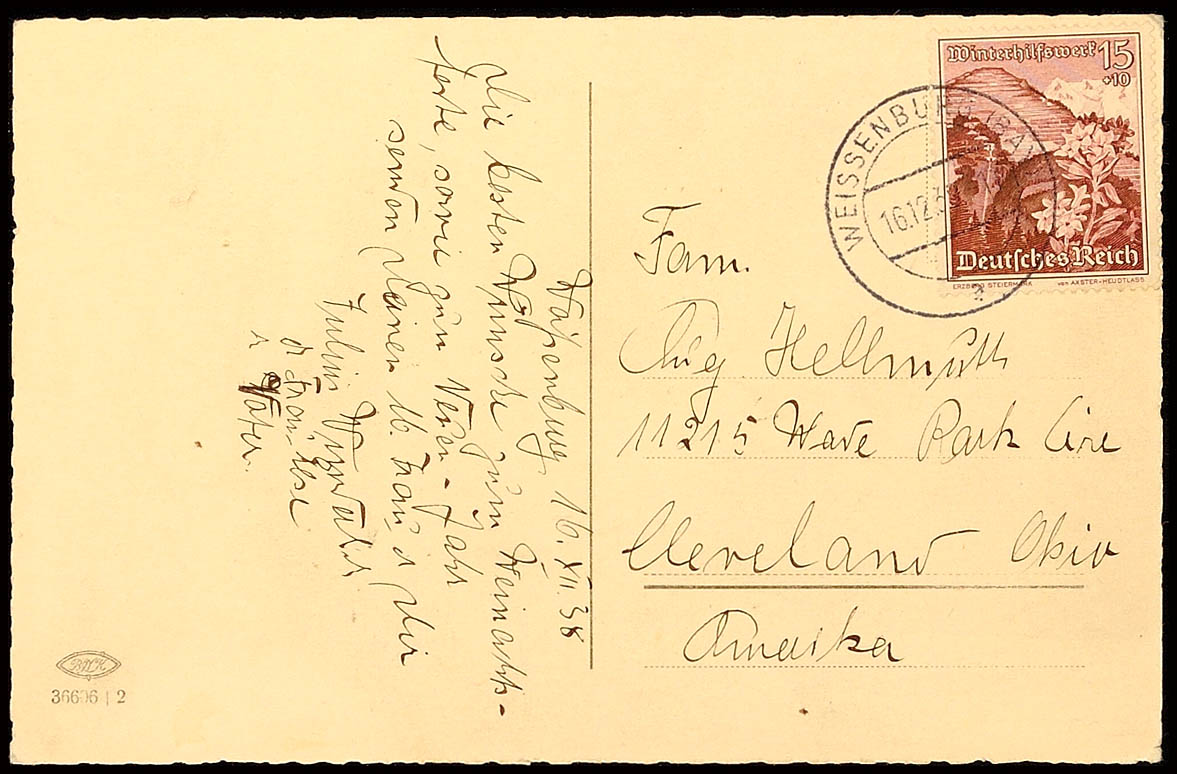 Weißenburg 16. XII. 38
Die besten Wünsche zum Weinachts-
feste, sowie zum Neuen-Jahr
senden Deiner lb. Frau u Dir
Julius
u Frau Ilse
u Vater.
Winterhilfswerk 15
+10
Deutsches Reich
ERZBERG STEIERMARK von AXSTER-HEUDTLASS
WEISSENBURG (BAY
16.12.3
a
Fam.
Aug. Hellmuth
11215 Wade Park Ave
Cleveland Ohio
Amerika
36606 | 2